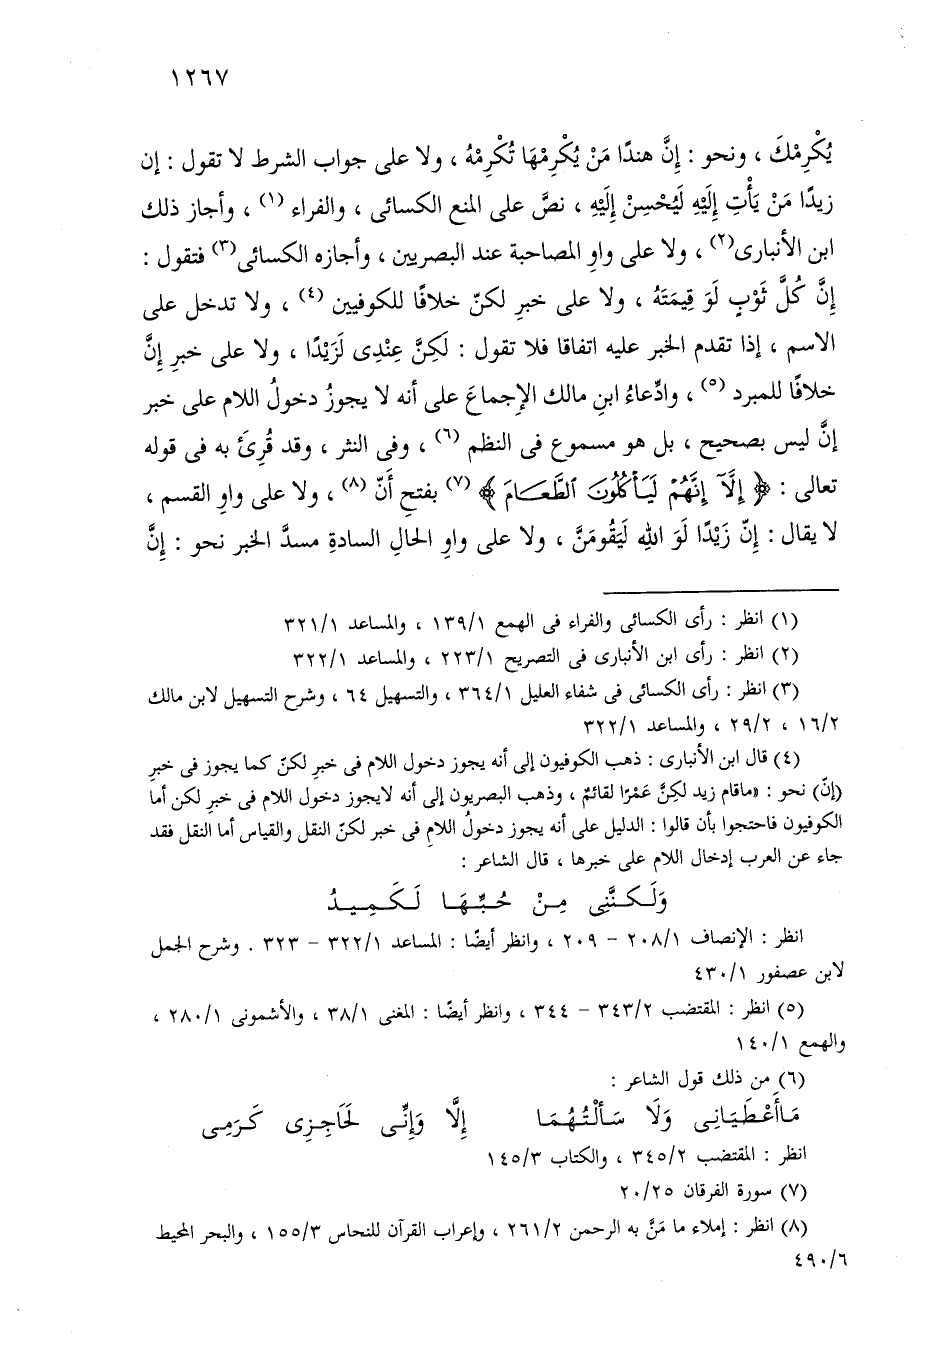 ١٢٦٧
يُكْرِمْكَ ، ونحو : إِنَّ هندًا مَنْ يُكْرِمْهَا تُكْرِمْهُ ، ولا على جواب الشرط لا تقول : إن
زيدًا مَنْ يَأْتِ إِلَيْهِ لَيُحْسِنْ إِلَيْهِ ، نصَّ على المنع الكسائى ، والفراء (١) ، وأجاز ذلك
ابن الأنبارى(٢) ، ولا على واوِ المصاحبة عند البصريين ، وأجازه الكسائى(٣) فتقول :
إِنَّ كُلَّ ثَوْبٍ لَوَ قِيمَتَهُ ، ولا على خبرِ لكنّ خلافًا للكوفيين (٤) ، ولا تدخل على
الاسم ، إذا تقدم الخبر عليه اتفاقا فلا تقول : لَكِنَّ عِنْدِى لَزَيْدًا ، ولا على خبرِ إنَّ
خلافًا للمبرد (٥) ، وادِّعاءُ ابنِ مالك الإجماعَ على أنه لا يجوزُ دخولُ اللام على خبر
إنَّ ليس بصحيح ، بل هو مسموع فى النظم (٦) ، وفى النثر ، وقد قُرِئَ به فى قوله
تعالى : ﴿ إِلَّآ إِنَّهُمْ لَيَأْكُلُونَ ٱلطَّعَامَ ﴾ (٧) بفتحِ أَنّ (٨) ، ولا على واوِ القسم ،
لا يقال : إِنّ زَيْدًا لَوَ اللهِ لَيَقُومَنَّ ، ولا على واوِ الحالِ السادةِ مسدَّ الخبر نحو : إنَّ
(١) انظر : رأى الكسائى والفراء فى الهمع ١٣٩/١ ، والمساعد ٣٢١/١
(٢) انظر : رأى ابن الأنبارى فى التصريح ٢٢٣/١ ، والمساعد ٣٢٢/١
(٣) انظر : رأى الكسائى فى شفاء العليل ٣٦٤/١ ، والتسهيل ٦٤ ، وشرح التسهيل لابن مالك
١٦/٢ ، ٢٩/٢ ، والمساعد ٣٢٢/١
(٤) قال ابن الأنبارى : ذهب الكوفيون إلى أنه يجوز دخول اللام فى خبرِ لكنّ كما يجوز فى خبرِ
(إنّ) نحو : «ماقام زيد لكِنَّ عَمْرًا لقائمٌ ، وذهب البصريون إلى أنه لايجوز دخول اللام فى خبرِ لكن أما
الكوفيون فاحتجوا بأن قالوا : الدليل على أنه يجوز دخولُ اللامِ فى خبر لكنّ النقل والقياس أما النقل فقد
جاء عن العرب إدخال اللام على خبرها ، قال الشاعر :
وَلَكنَّنِى مِنْ حُبِّهَا لَكَمِيدُ
انظر : الإنصاف ٢٠٨/١ – ٢٠٩ ، وانظر أيضًا : المساعد ٣٢٢/١ – ٣٢٣ . وشرح الجمل
لابن عصفور ٤٣٠/١
(٥) انظر : المقتضب ٣٤٣/٢ – ٣٤٤ ، وانظر أيضًا : المغنى ٣٨/١ ، والأشمونى ٢٨٠/١ ،
والهمع ١٤٠/١
(٦) من ذلك قول الشاعر :
مَاأَعْطَيَانِى وَلَا سَأَلْتُهُمَا إِلَّا وَإِنِّى لَحَاجِزِى كَرَمِى
انظر : المقتضب ٣٤٥/٢ ، والكتاب ١٤٥/٣
(٧) سورة الفرقان ٢٠/٢٥
(٨) انظر : إملاء ما مَنَّ به الرحمن ٢٦١/٢ ، وإعراب القرآن للنحاس ١٥٥/٣ ، والبحر المحيط
٤٩٠/٦